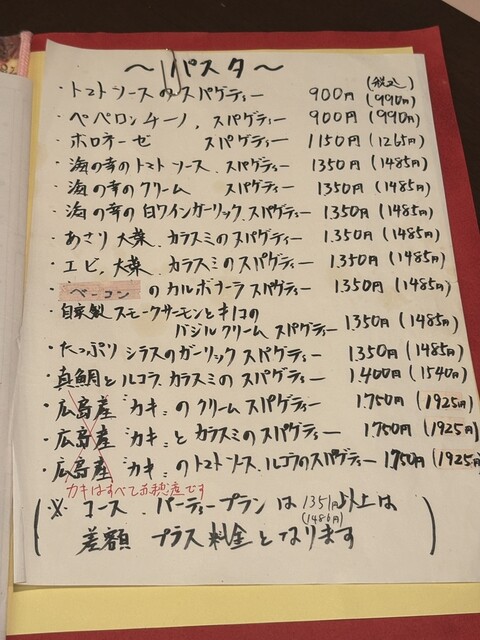 〜パスタ〜
(税込)
・トマトソースのスパゲティー 900円 (990円)
・ペペロンチーノ、スパゲティー 900円 (990円)
・ボロネーゼ スパゲティー 1150円 (1265円)
・海の幸のトマトソース、スパゲティー 1350円 (1485円)
・海の幸のクリーム スパゲティー 1350円 (1485円)
・海の幸の白ワインガーリック、スパゲティー 1350円 (1485円)
・あさり、大葉、カラスミのスパゲティー 1.350円 (1485円)
・エビ、大葉、カラスミのスパゲティー 1.350円 (1485円)
・ベーコンのカルボナーラスパゲティー 1.350円 (1485円)
・自家製スモークサーモンとキノコの
バジルクリームスパゲティー 1.350円 (1485円)
・たっぷりシラスのガーリックスパゲティー 1.350円 (1485円)
・真鯛とルコラ、カラスミのスパゲティー 1.400円 (1540円)
・広島産"カキ"のクリームスパゲティー 1.750円 (1925円)
・広島産"カキ"とカラスミのスパゲティー 1.750円 (1925円)
・広島産"カキ"のトマトソース、ルコラのスパゲティー 1.750円 (1925円)
カキはすべて赤穂産です
(※ コース、パーティープランは1351円以上は
(1486円)
差額プラス料金となります)